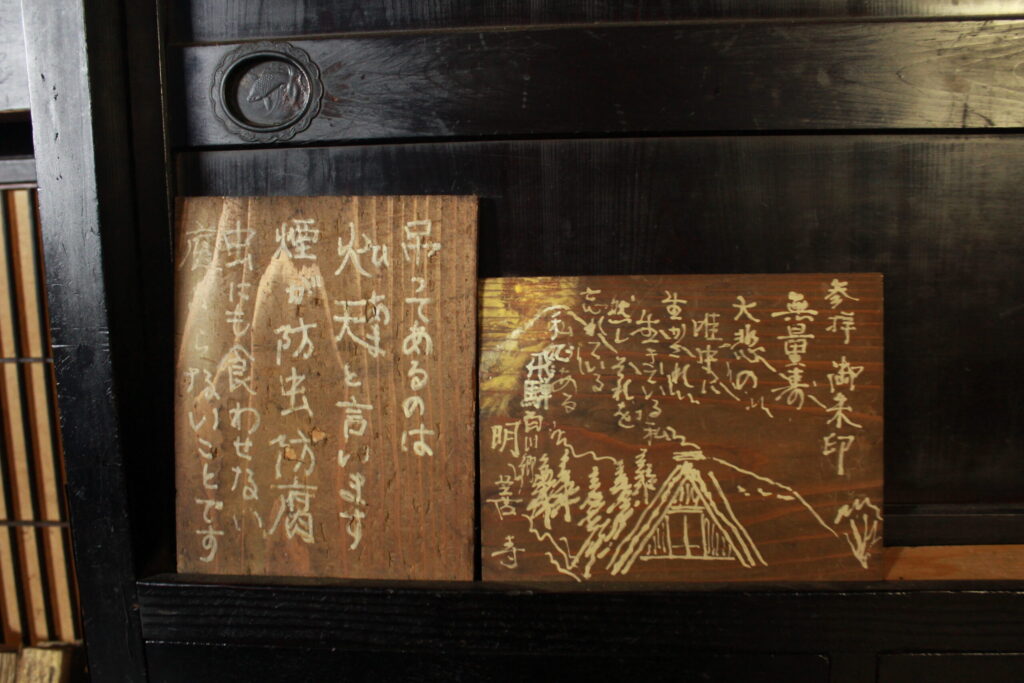 吊ってあるのは
火天と言います
ひ あま
煙が防虫防腐
虫にも食わせない
腐らないことです
参拝 御朱印
無量寿
大悲の
生かされ
生きている私
然しそれを
忘れている
私である
飛騨白川郷
明善寺